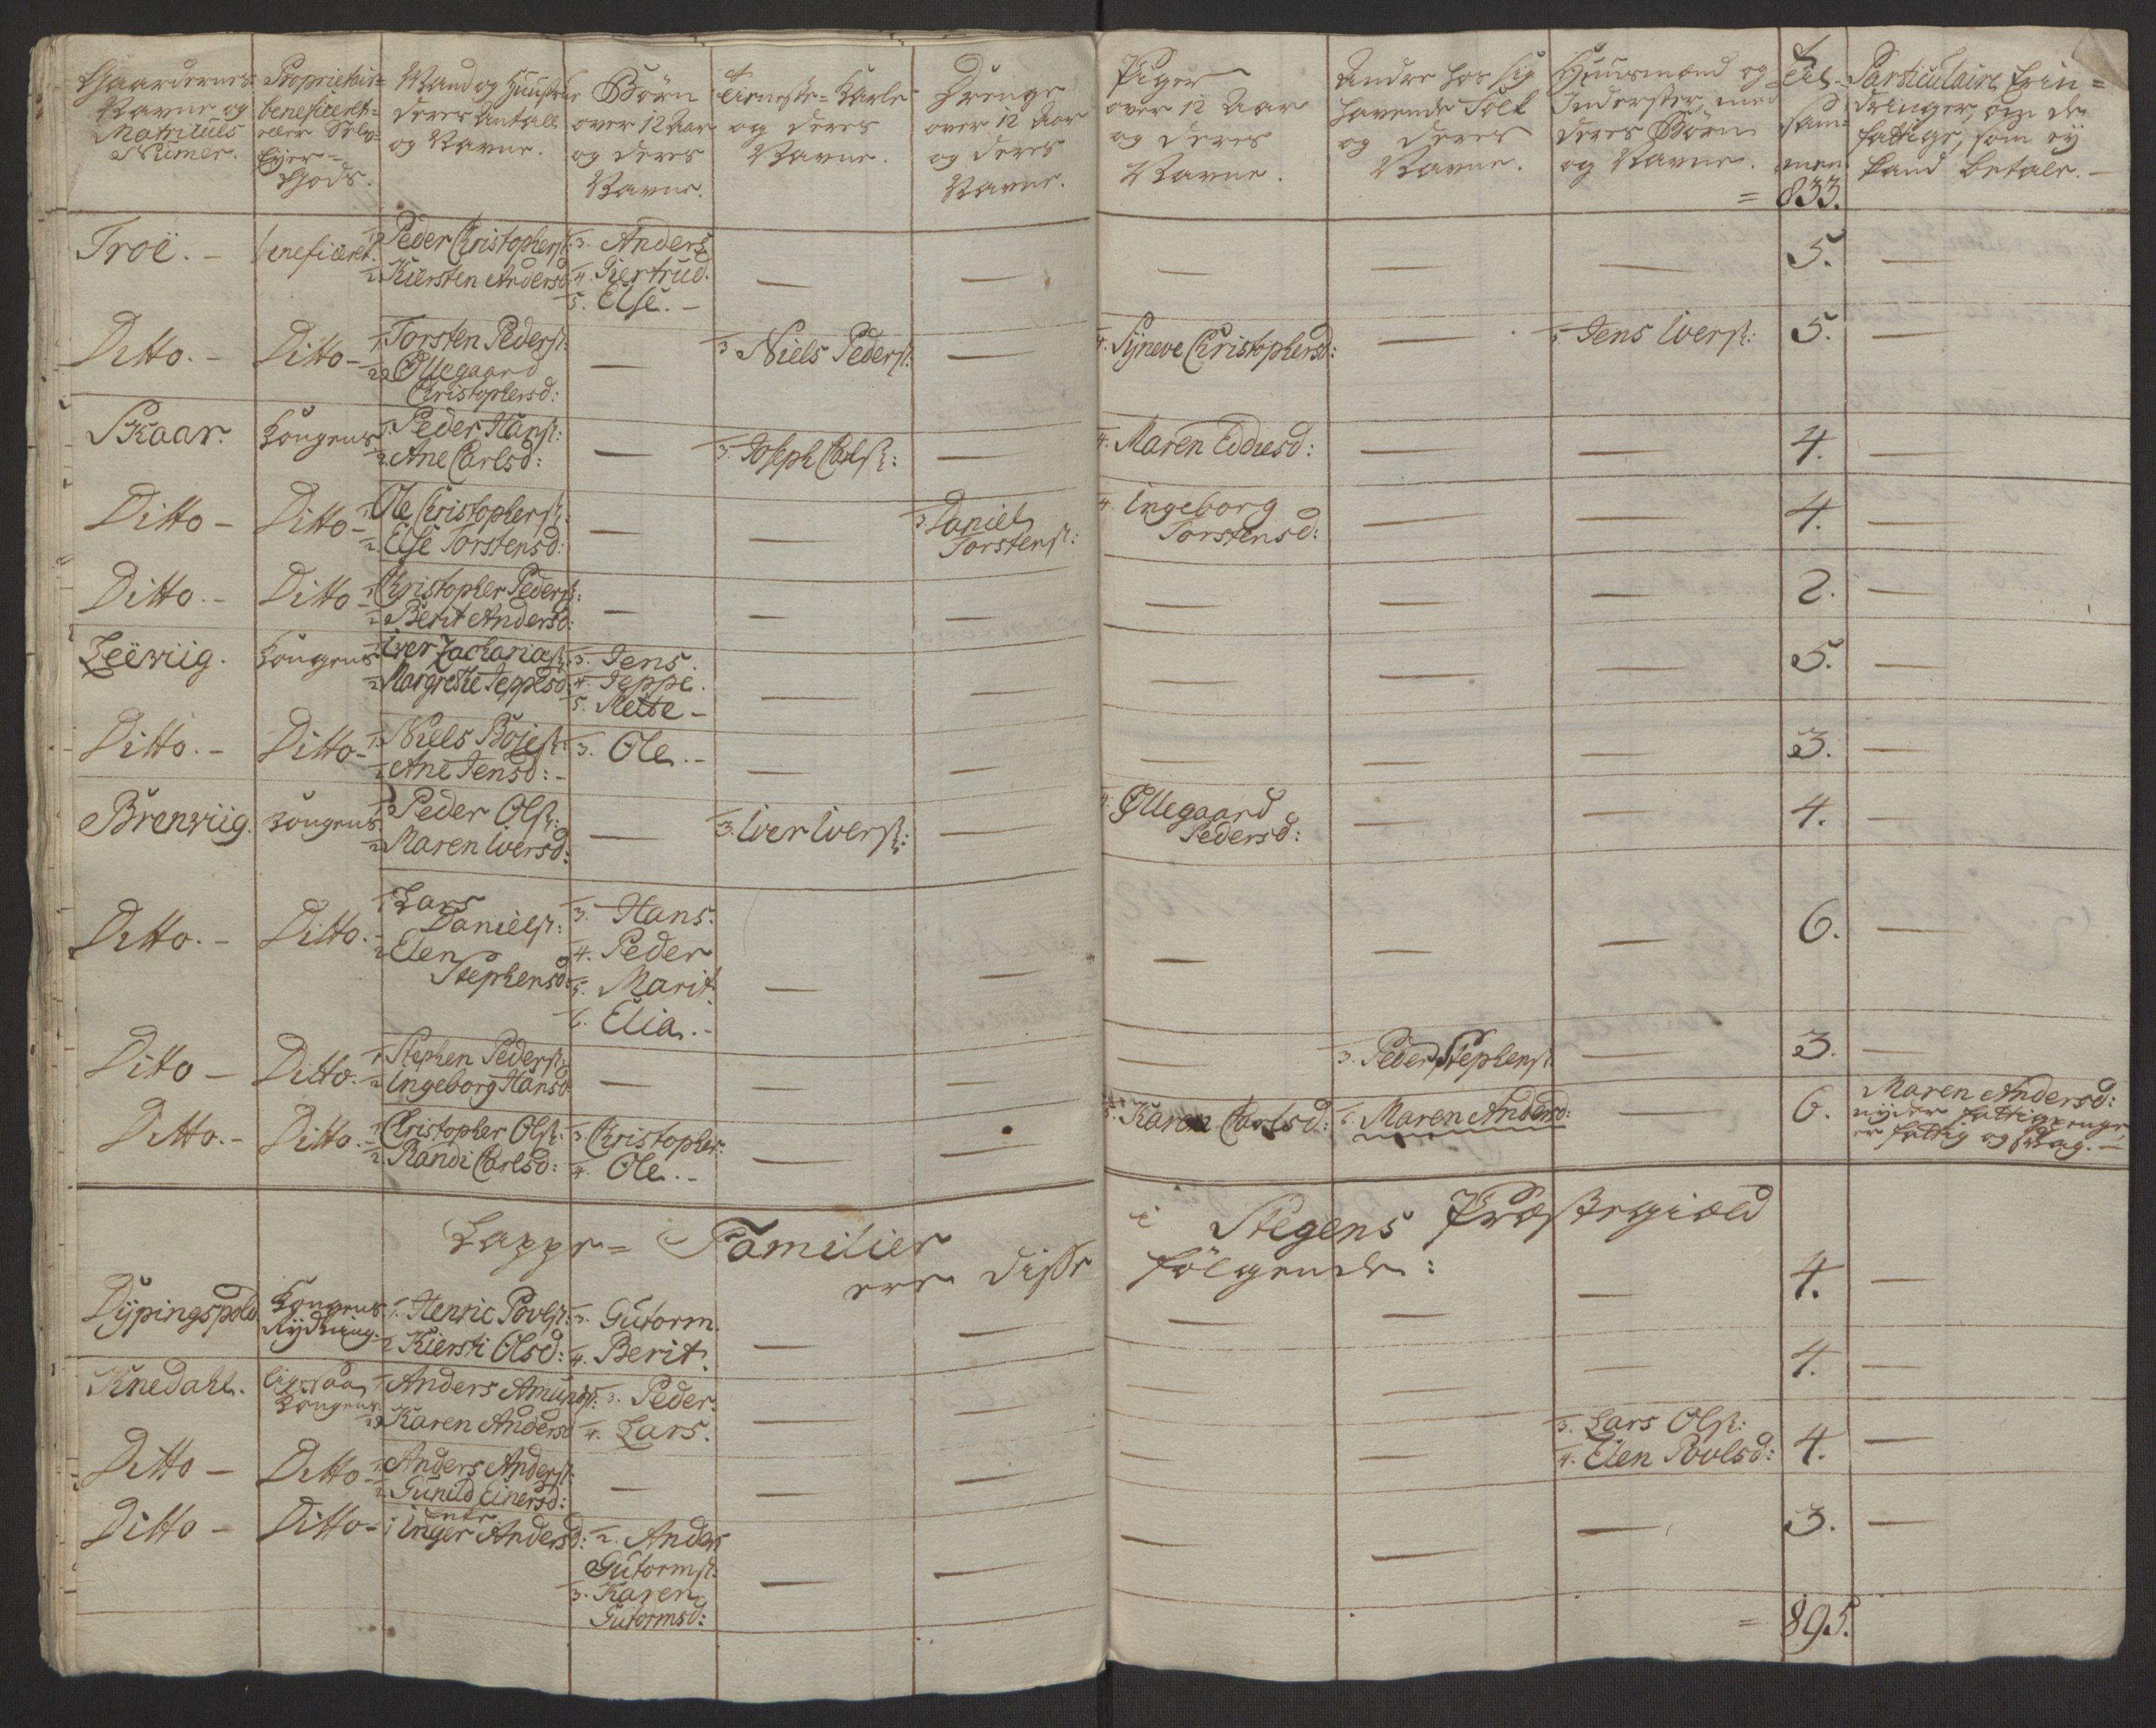 Gaardernes Navne og Matriculs Numer.
Proprietair= beneficeret= eller Selv= Eyer= Gods.
Mand og Huustrue deres Antall og Navne.
Børn over 12 Aar og deres Navne.
Tieneste=Karle og deres Navne.
Drenge over 12 Aar og deres Navne.
Piger over 12 Aar og deres Navne.
Andre hos sig havende Folk og deres Navne.
Huusmænd og Inderster, med deres Børn og Navne.
Til= sam= men
Particulaire Erin= dringer, om de fattige, som ey kand betale.
= 833.
Troë. - beneficeret. 1. Peder Christophers: 3. Anders — — — — — 5. —
2. Kiersten Andersd: 4. Giertrud.
5. Else. -
Ditto. - Ditto - 1. Torsten Peders: — 3. Niels Peders: — 4. Syneve Christophersd: — 5. Jens Ivers: 5. —
2. Ollegaard
Christophersd:
Skaar. Kongens 1. Peder Hans: — 3. Joseph Carls: — 4. Maren Eddiesd: — — 4. —
2. Ane Carlsd:
Ditto - Ditto - 1. Ole Christophers: — — 3. Daniel 4. Ingeborg — — 4. —
2. Else Torstensd: Torstens: Torstensd:
Ditto. - Ditto - 1. Christopher Peders: — — — — — — 2. —
2. Berit Andersd:
Leëwiig. Kongens 1. Iver Zacharias: 3. Jens. — — — — — 5. —
2. Margrethe Jeppesd: 4. Jeppe.
5. Mette -
Ditto. - Ditto - 1. Niels Bojes: 3. Ole. - — — — — — 3. —
2. Ane Jensd: -
Brenwiig. Kongens 1. Peder Ols: — 3. Iver Ivers: — 4. Ollegaard — — 4. —
2. Maren Iversd: Pedersd:
Ditto. - Ditto. - 1. Lars 3. Hans. — — — — — 6. —
Daniels: 4. Peder
2. Elen 5. Marit.
Stephensd: 6. Elia. -
Ditto - Ditto. 1. Stephen Peders: — — — — 3. Peder Stephens: — 3. —
2. Ingeborg Hansd:
Ditto. - Ditto. - 1. Christopher Ols: 3. Christopher: — — 5. Karen Carlsd: 6. Maren Andersd: — 6. Maren Andersd:
2. Randi Carlsd: 4. Ole. - nyder fattigpenge,
er fattig og svag. -
Lappe= Familier i Stegens Præstegiæld
ere disse følgende:
Dypingspold Kongens 1. Henric Povls: 3. Gutorm. — — — — — 4. —
Rydning. 2. Kiersti Olsd: 4. Berit.
Knedahl. ligesaa 1. Anders Amunds: 3. Peder. — — — — — 4. —
Kongens 2. Karen Andersd 4. Lars.
Ditto - Ditto - 1. Anders Anders: — — — — — 3. Lars Ols: 4. —
2. Gunild Einersd: 4. Elen Povlsd:
Ditto - Ditto - 1. Enke
Inger Andersd: 2. Anders — — — — — 3. —
Gutorms:
3. Karen
Gutormsd:
= 895.